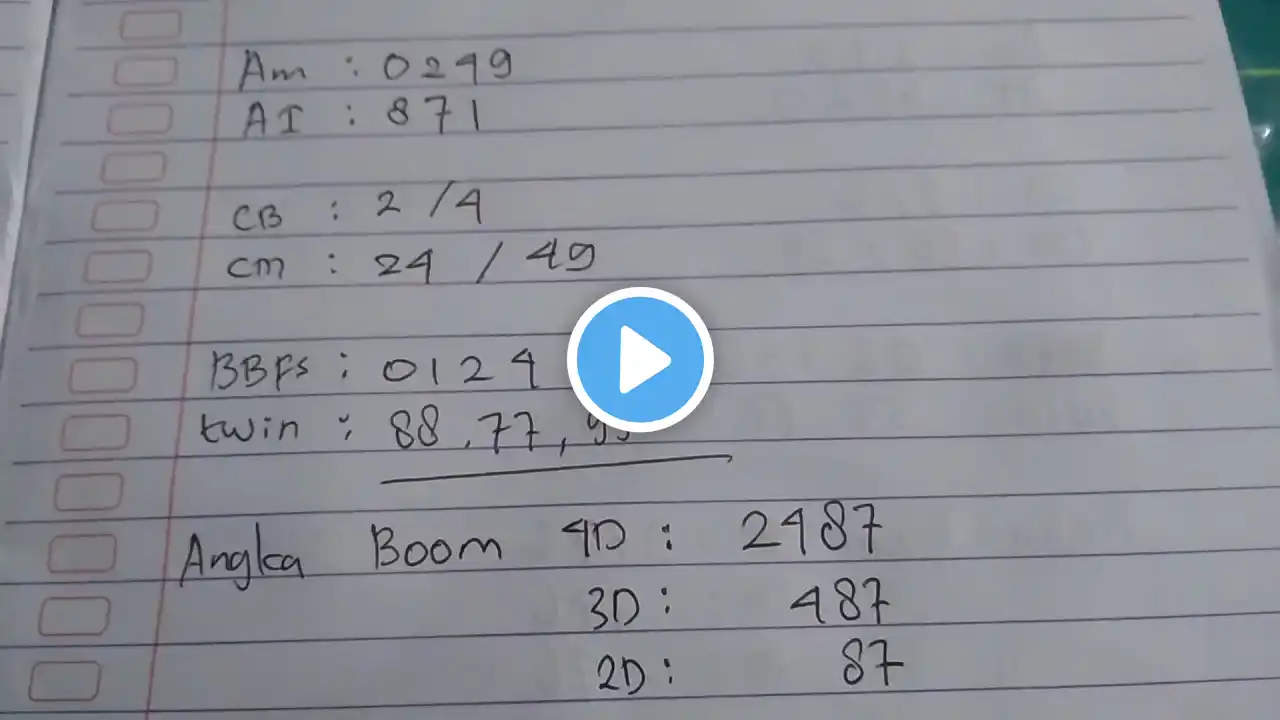 Am : 0249
AI : 871
CB : 2 / 4
CM : 24 / 49
BBFS : 0124
twin : 88 , 77 ,
Angka Boom 4D : 2487
3D : 487
2D : 87